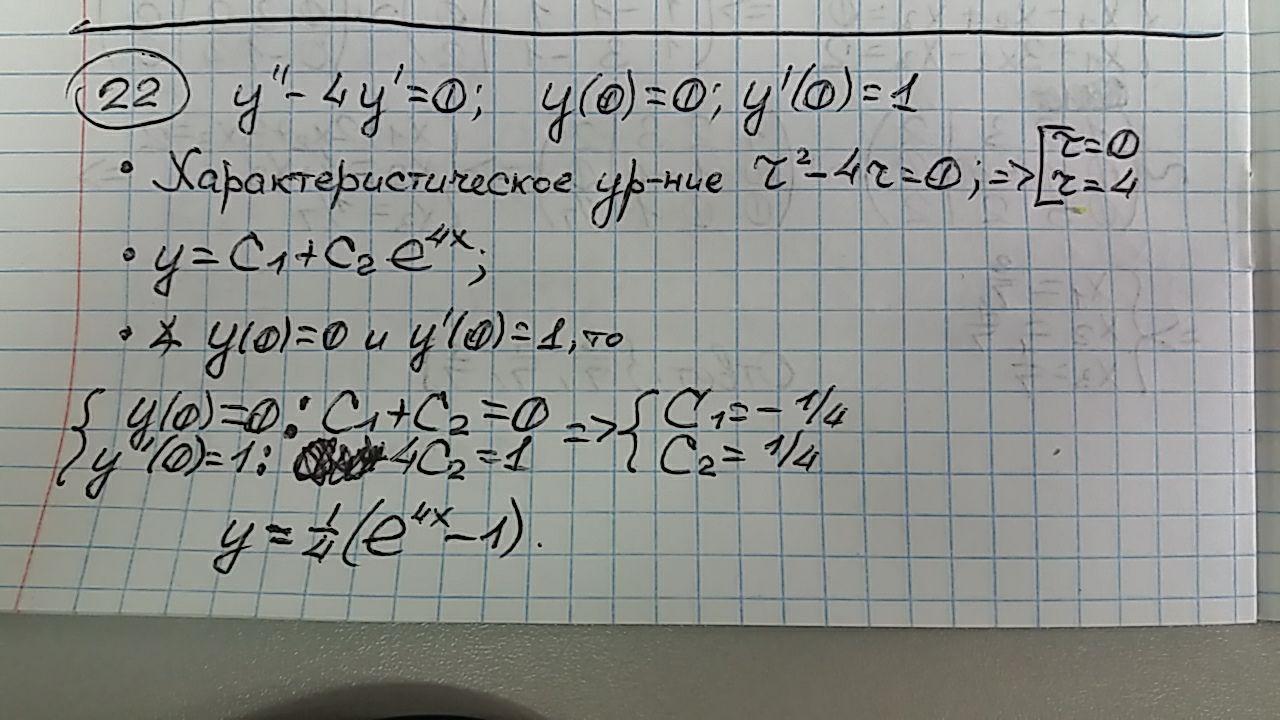 22 y'' - 4y' = 0; y(0) = 0; y'(0) = 1
• Характеристическое ур-ние τ² - 4τ = 0; => [τ = 0 τ = 4
• y = C₁ + C₂ e^{4x};
• y(0) = 0 и y'(0) = 1, то
{ y(0) = 0: C₁ + C₂ = 0 => { C₁ = - 1/4
y'(0) = 1: 4C₂ = 1 C₂ = 1/4
y = 1/4 (e^{4x} - 1).